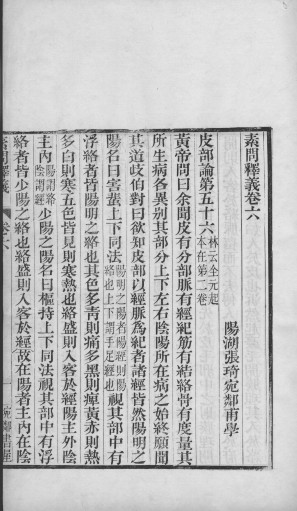 素問釋義卷六
陽湖張琦宛鄰甫學
皮部論第五十六林云全元起本在第二卷
黃帝問曰余聞皮有分部脈有經紀筋有結絡骨有度量其
所生病各異別其部分左右上下陰陽所在病之始終願聞
其道歧伯對曰欲知皮部以經脈為紀者諸經皆然陽明之
陽名曰害蜚上下同法視其部中有
浮絡者皆陽明之絡也其色多青則痛多黑則痺黃赤則熱
多白則寒五色皆見則寒熱也絡盛則入客於經陽主外陰
主內少陽之陽名曰樞持上下同法視其部中有浮
絡者皆少陽之絡也絡盛則入客於經故在陽者主內在陰
素問釋義
卷六